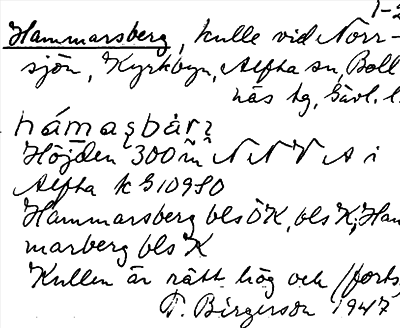 1-2
Hammarsberg, kulle vid Norr-
sjön, Kyrkbyn, Alfta sn, Boll
näs hg, Gävl. l.
hámaşbàrɿ
Höjden 300 m N N V A i
Alfta k G 109 SO
Hammarsberg bls ÖK, bls K; Ham
marberg bls K
Kullen är rätt hög och (forts,
T. Birgerson 1947